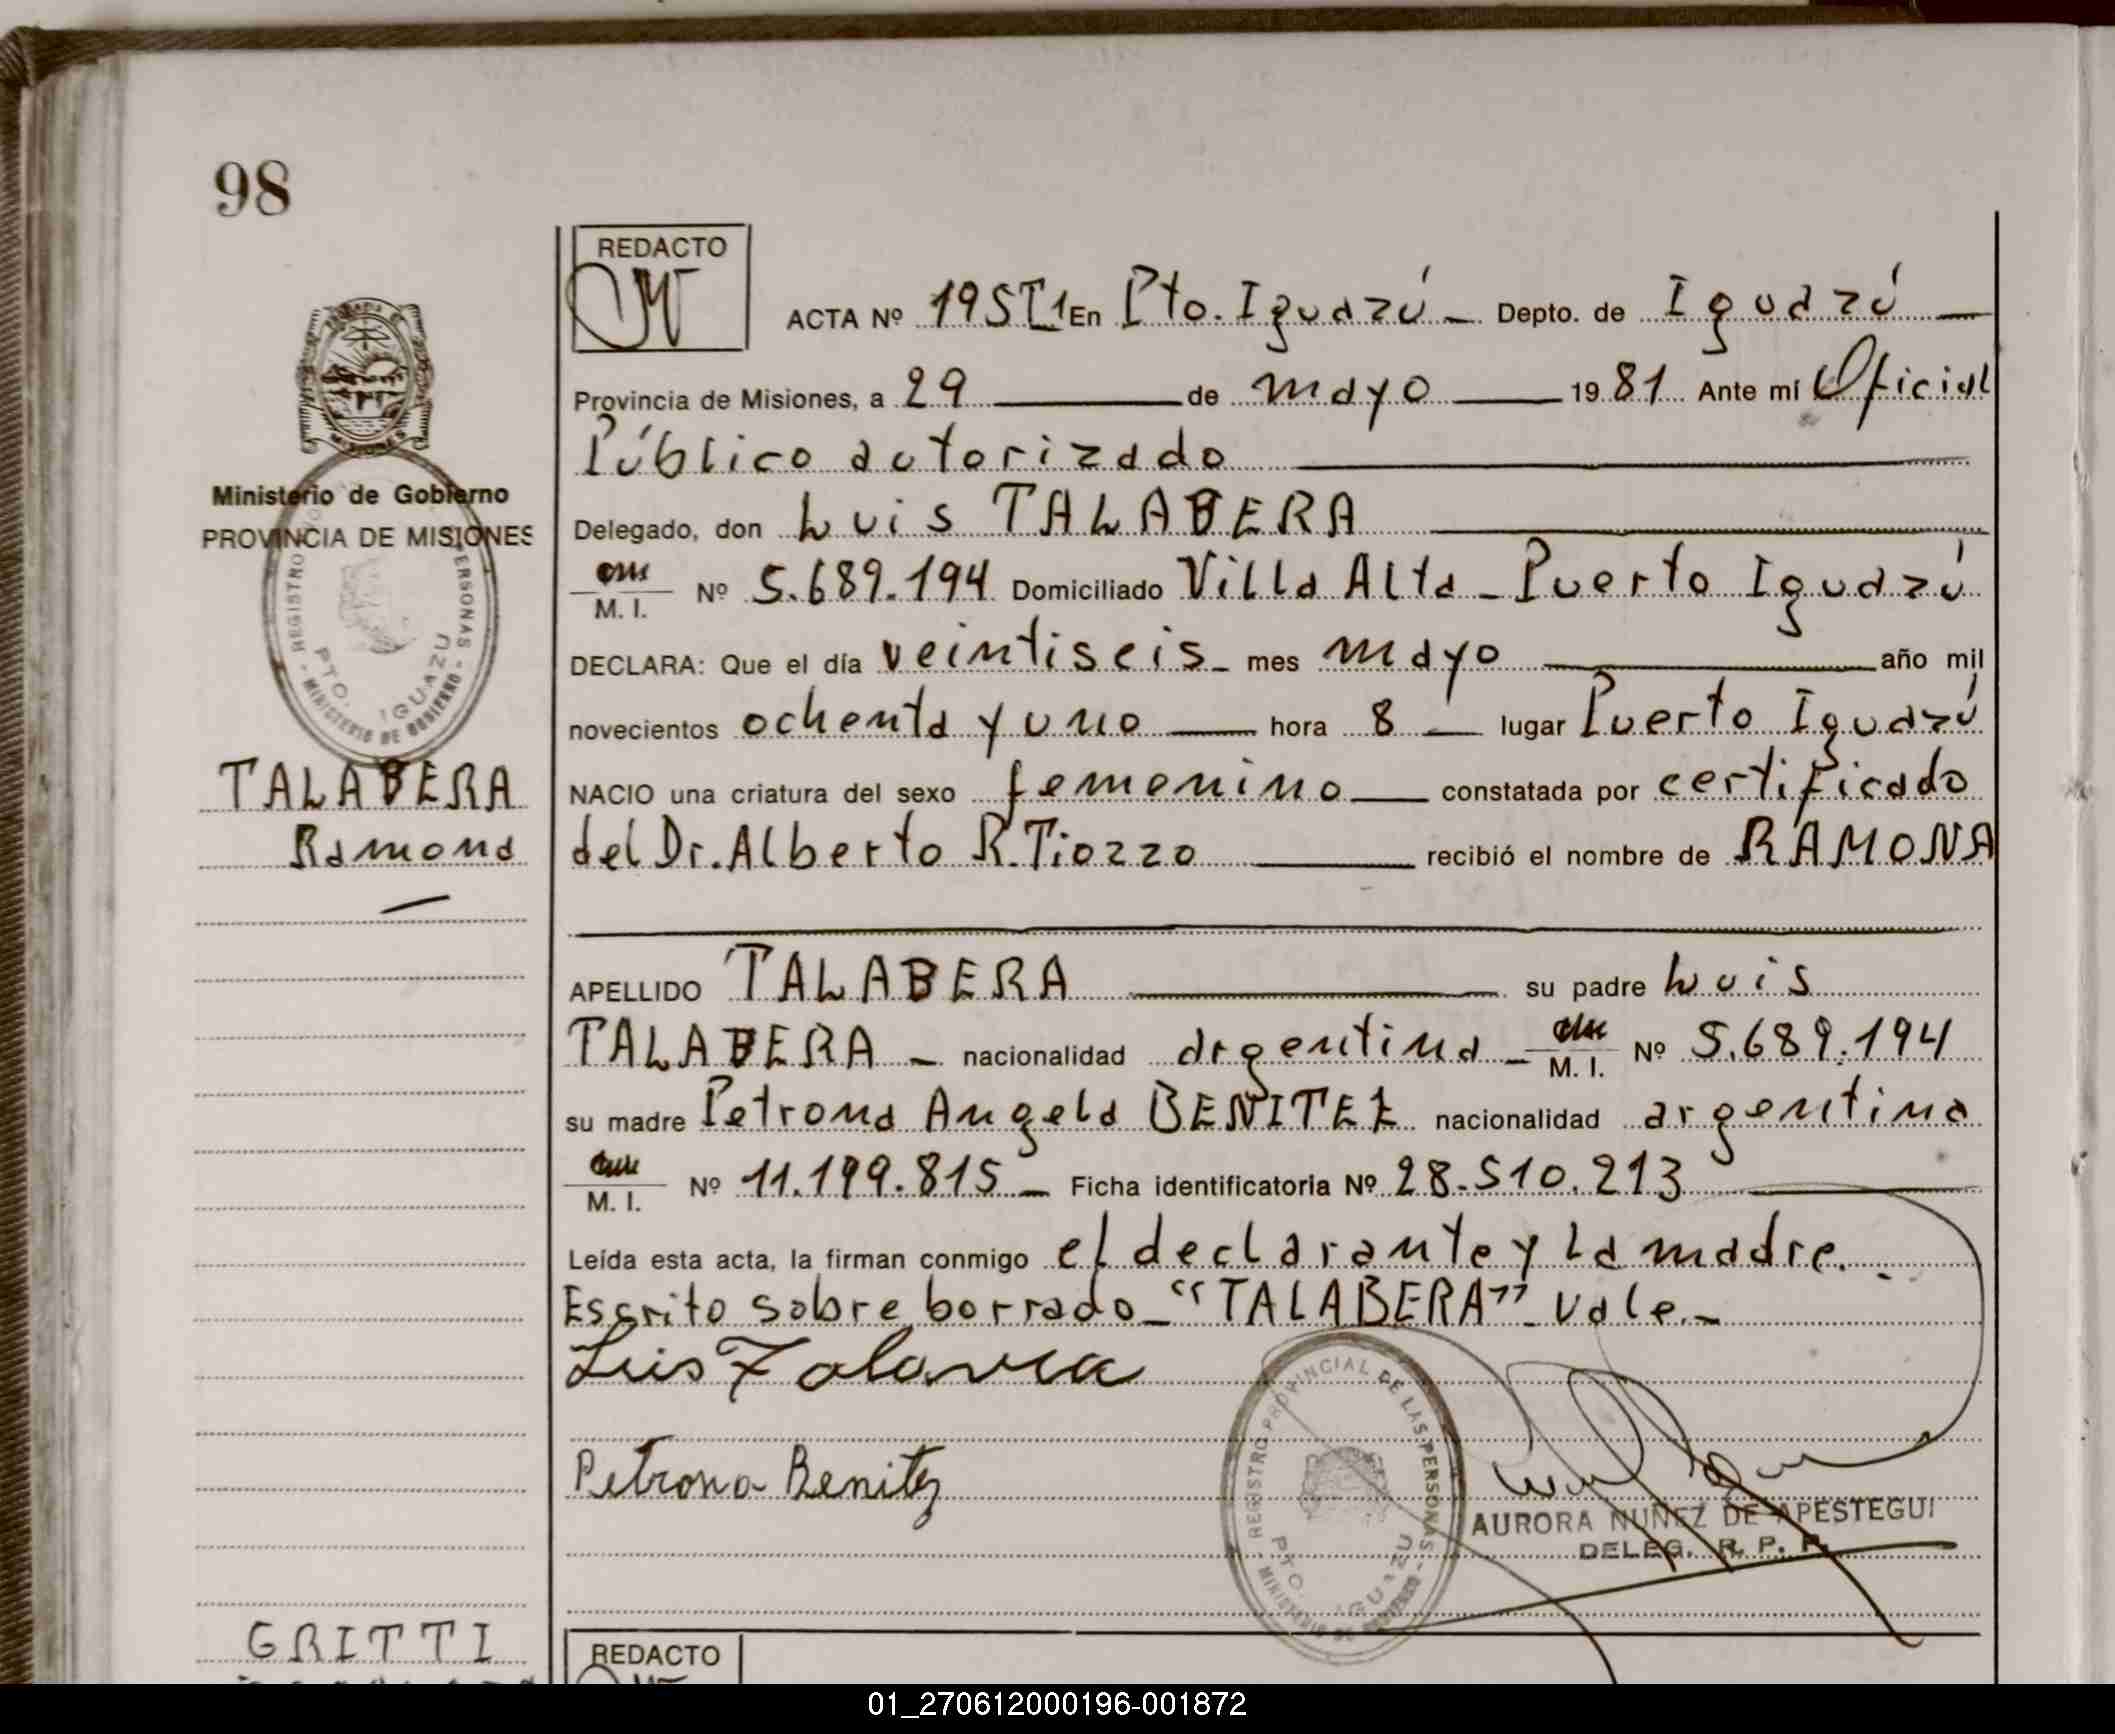 98
REDACTO
ACTA Nº 195 T1 En Pto. Iguazú Depto. de Iguazú
Provincia de Misiones, a 29 de mayo 1981 Ante mí Oficial
Público autorizado
Ministerio de Gobierno
PROVINCIA DE MISIONES
Delegado, don Luis TALABERA
M. I. Nº 5.689.194 Domiciliado Villa Alta - Puerto Iguazú
DECLARA: Que el día veintiseis mes mayo año mil
novecientos ochenta y uno hora 8 lugar Puerto Iguazú
TALABERA
Ramona
NACIO una criatura del sexo femenino constatada por certificado
del Dr. Alberto R. Tiozzo recibió el nombre de RAMONA
APELLIDO TALABERA su padre Luis
TALABERA - nacionalidad argentina - M. I. Nº 5.689.194
su madre Petrona Angela BENITEZ nacionalidad argentina
M. I. Nº 11.199.815 - Ficha identificatoria Nº 28.510.213
Leída esta acta, la firman conmigo el declarante y la madre.
Escrito sobre borrado - "TALABERA" - vale. -
Luis Talavera
Petrona Benitez
REGISTRO PROVINCIAL DE LAS PERSONAS
PTO. IGUAZU
MINISTERIO DE GOBIERNO
AURORA NUÑEZ DE APESTEGUI
DELEG. R. P. P.
GRITTI
REDACTO
01_270612000196-001872